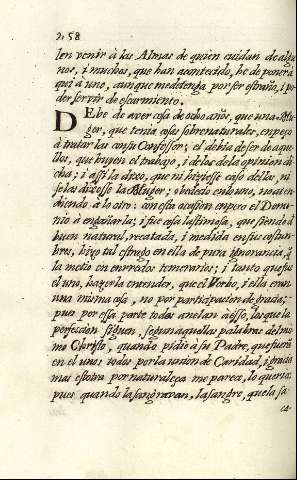 258
len venir à las Almas de quien cuidan de algu
nos, i muchos, que han acontecido, he de poner a
qui à uno, aunque me detenga por ser estraño, i po
der servir de escarmiento.
DEbe de aver cosa de ocho años, que una Mu
ger, que tenia cosas sobrenaturales, empeço
à tratar las con su Confessor; el debia de ser de aque
llos, que huyen el trabajo, i de los de la opinion di
cha; i assi la dixo, que ni hiziesse caso dellas, ni
se las dixesse la Muger; obedeciò en lo uno, no aten
diendo à lo otro: con esta ocasion empeço el Demo
nio à engañarla; i fue cosa lastimosa, que siendo de
buen natural, recatada, i medida en sus costum
bres, hizo tal estrago en ella de pura ignorancia, q
la metio en enredos temerarios; i tanto que fue
el uno, hazerla entender, que el Verbo, i ella eran
una misma cosa, no por participacion de gracia;
pues por essa parte todos anelan à esso, los que la
perfeccion siguen, segun aquellas palabras del mis
mo Christo, quando pidiò à su Padre, que fuessen
en el uno: todos por la union de Caridad, i gracia
mas estotra por naturaleça me parece, lo queria:
pues quando la sangravan, la sangre, que la sa
ca-